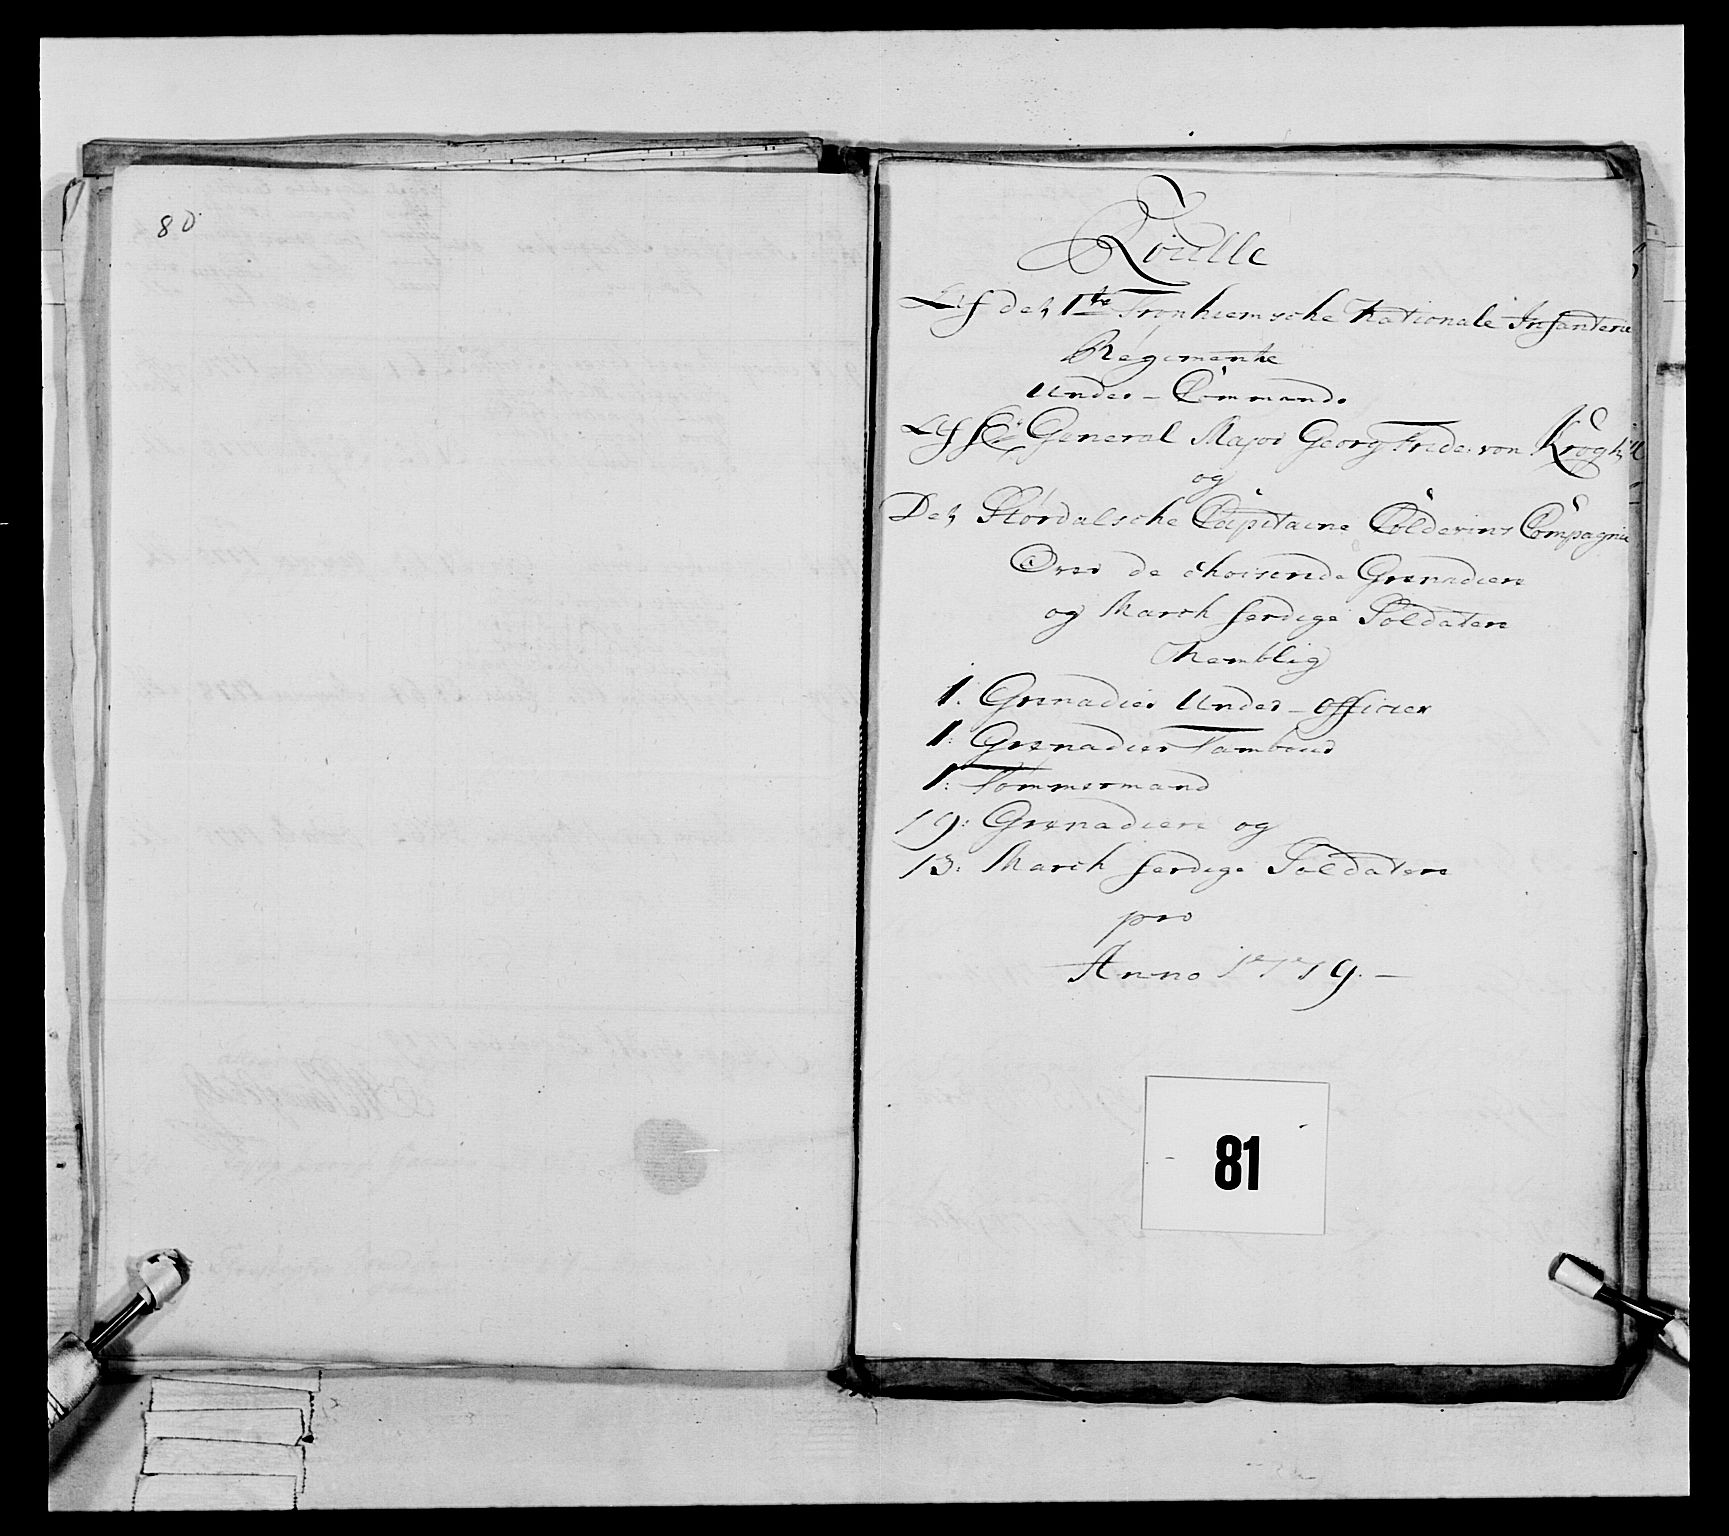 80
Roulle
Af det 1te Tronhiemsche Nationale Infanterie
Regimente
Under-Commando
Af Hr General Major Georg Frede: von Krogh
og
Det Størdalsche Capitaine Colderins Compagnie
Over de choisende Grenadiere
og March ferdige Soldatere
Nemblig
1: Grenadier Under-officier
1: Grenadier Tambour
1: Tømmermand
19: Grenadiere og
13: March ferdige Soldatere
pro
Anno 1779.-
81